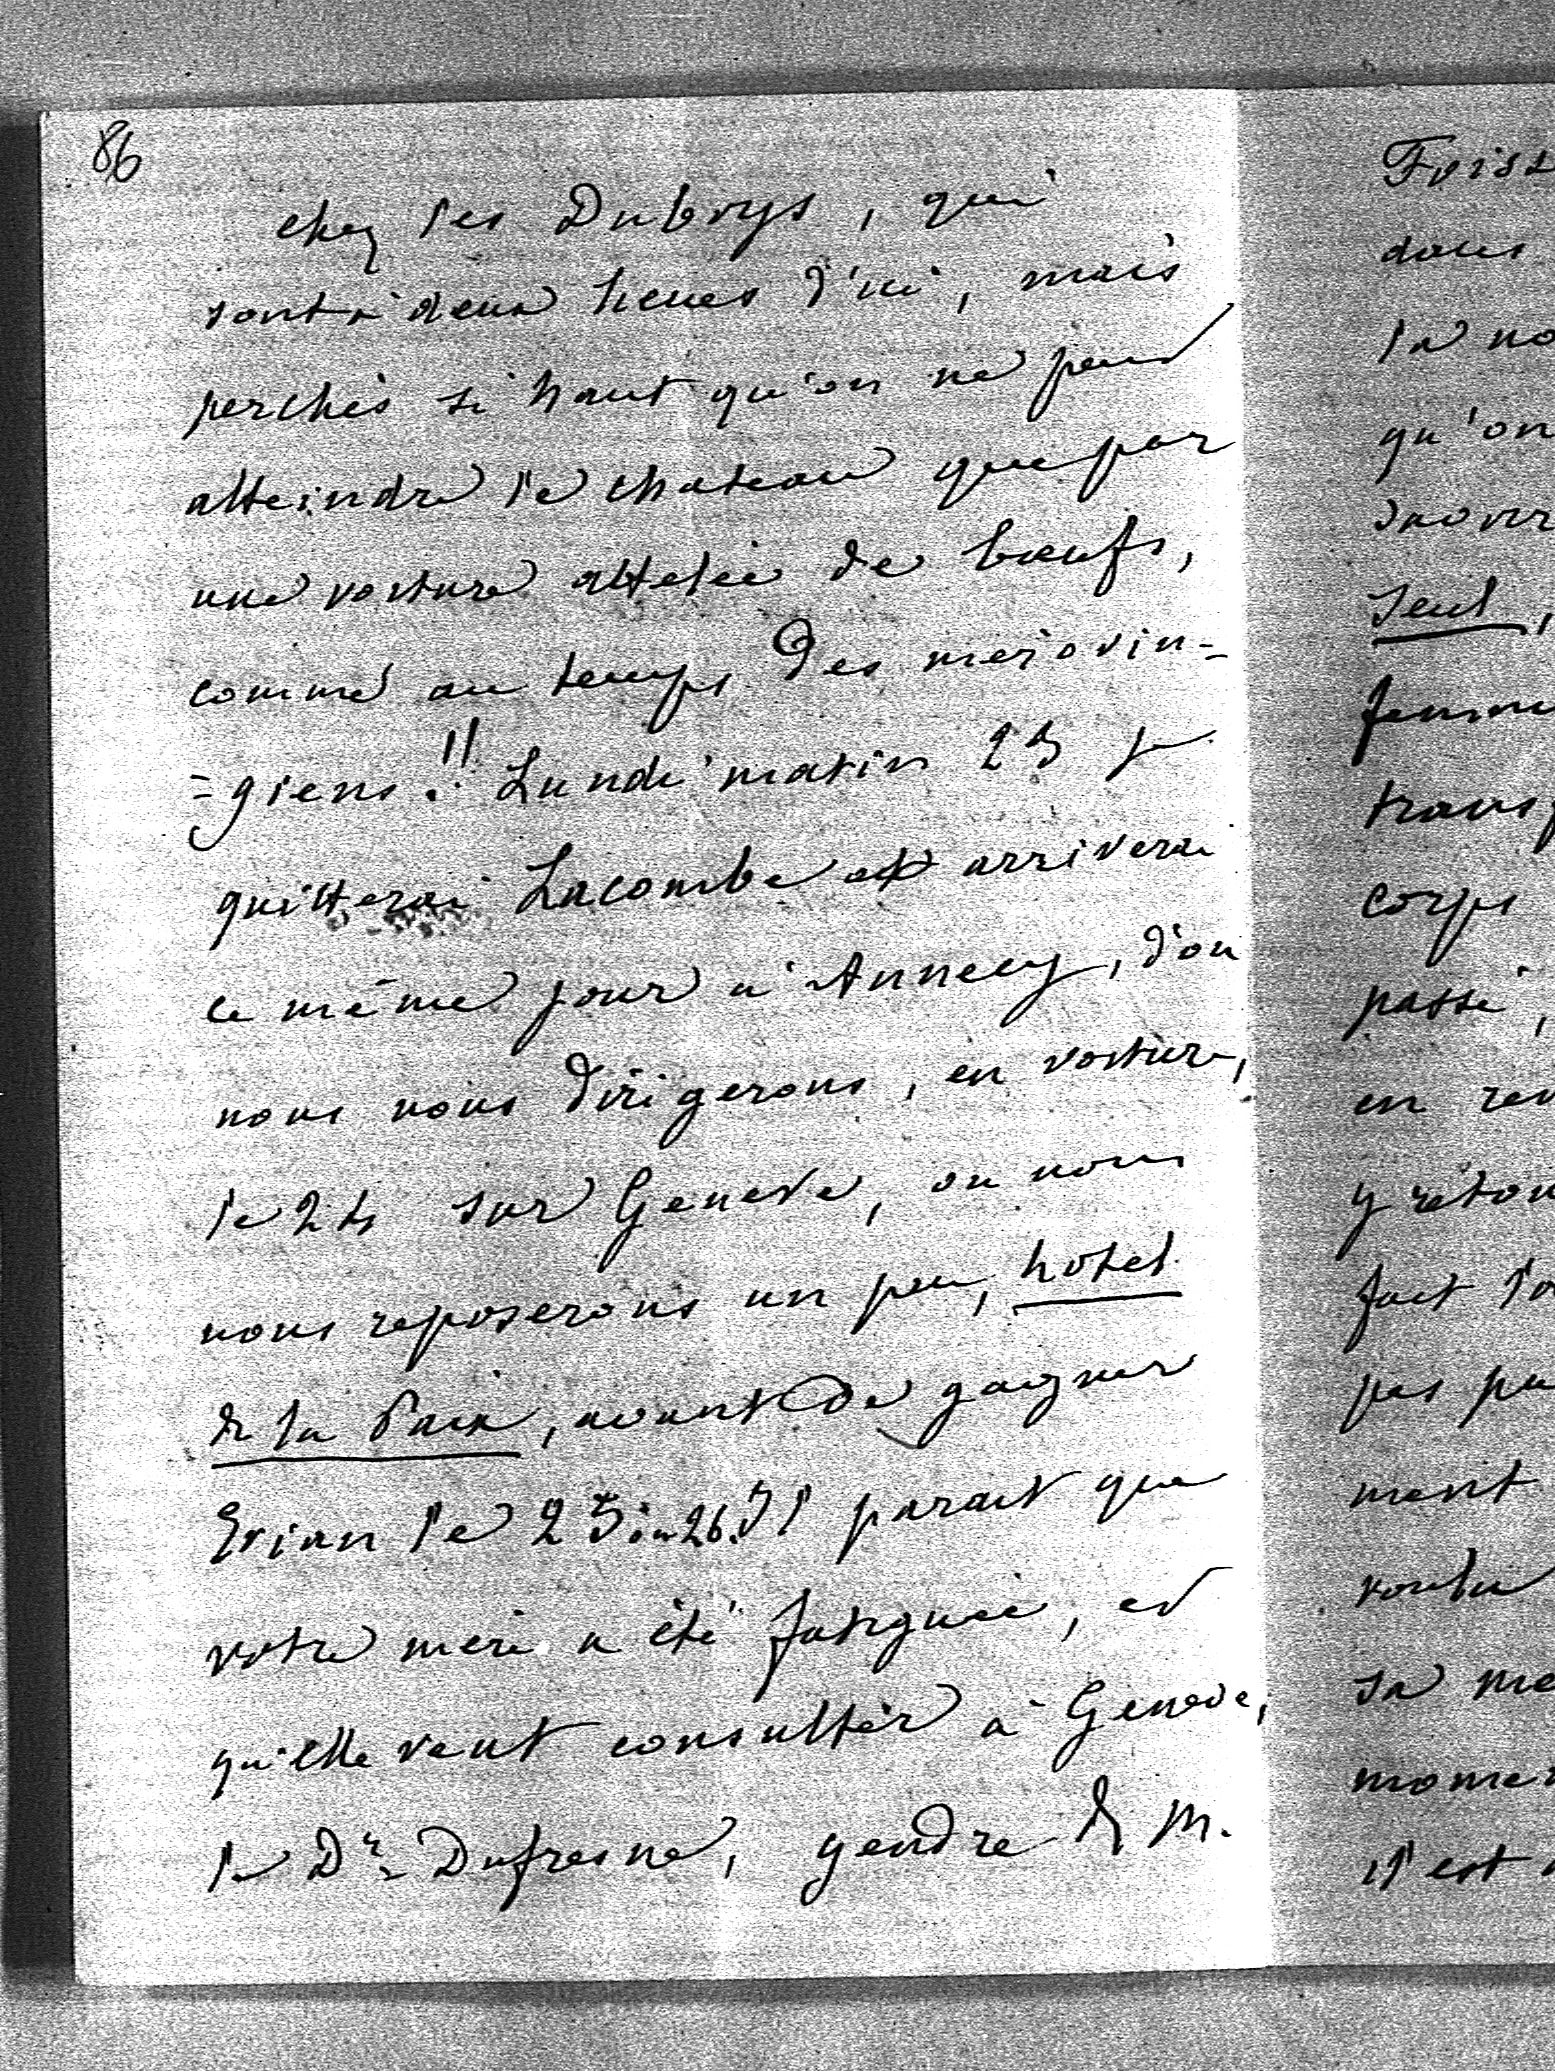 86
chez les Duboys, qui
sont à deux lieues d'ici, mais
perchés si haut qu'on ne peut
atteindre le chateau que par
une voiture attelée de bœufs,
comme au temps des mérovin-
=giens!!! Lundi matin 23 je
quitterai Lacombe et arriverai
ce même jour à Annecy, d'où
nous nous dirigerons, en voiture,
le 24 sur Genève, où nous
nous reposerons un peu, hotel
de la Paix, avant de gagner
Evian le 25 ou 26. Il parait que
votre mère a été fatiguée, et
qu'elle veut consulter à Genève,
le Dr Dufresne, gendre de M.
dans
la no
qu'on
seul,
femme
trans
corps
passé,
en rev
y retou
fait l'a
pas pu
ment
voulu
sa me
momen
il est